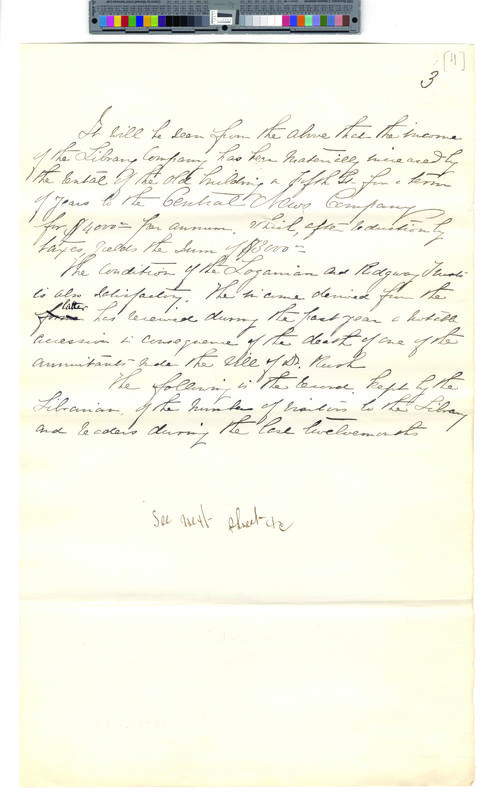 [4]
3
It will be seen from the above that the income
of the Library Company has been materially increased by
the rental of the old building on Fifth St. for a term
of years to the Central News Company
for $4000= per annum, which, after deduction by
taxes, yields the sum of $3000=
The condition of the Loganian and Ridgway Funds
is also satisfactory. The income derived from the
latter has received during the past year a
accession in consequence of the death of one of the
annuitants under the will of Dr. Rush
The following is the record, kept by the
Librarian, of the number of visitors to the Library
and readers during the last twelvemonths
See next sheet 4